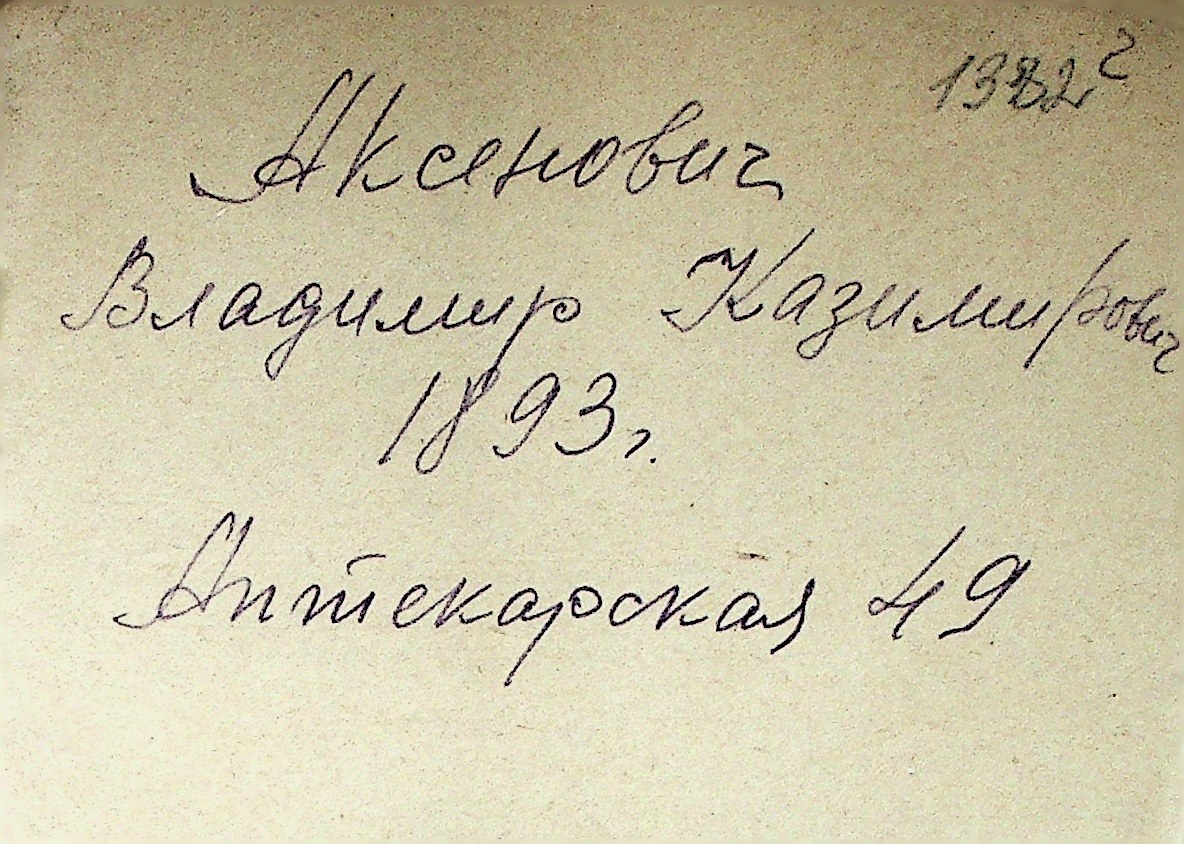 1382
Аксенович
Владимир Казимирович
1893 г.
Аптекарская 49